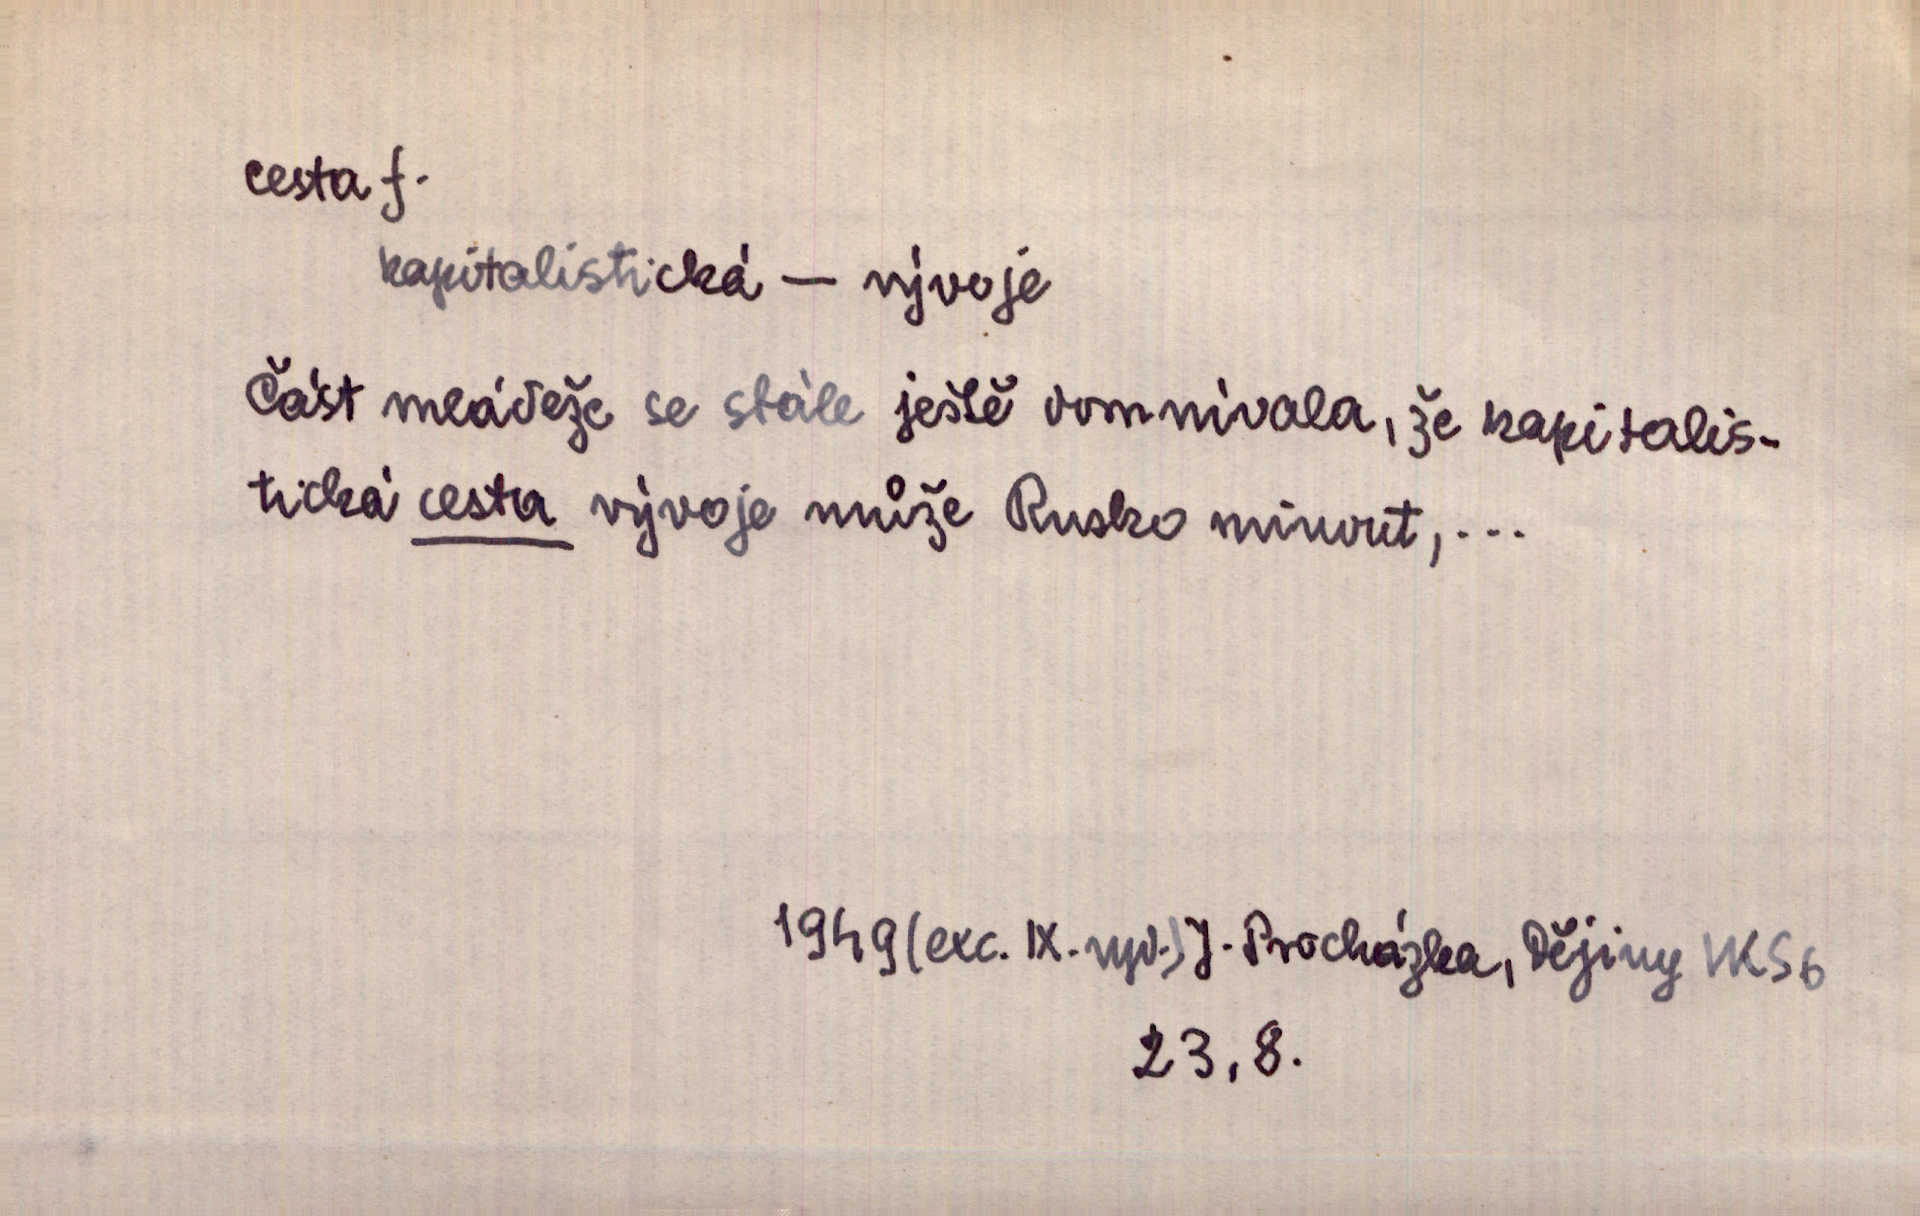 cesta f.
kapitalistická — vývoje
Část mládeže se stále ještě domnívala, že kapitalis-
tická cesta vývoje může Rusko minout, ...
1949 (exc. IX. vyd.) J. Procházka, Dějiny VKSb
23,8.